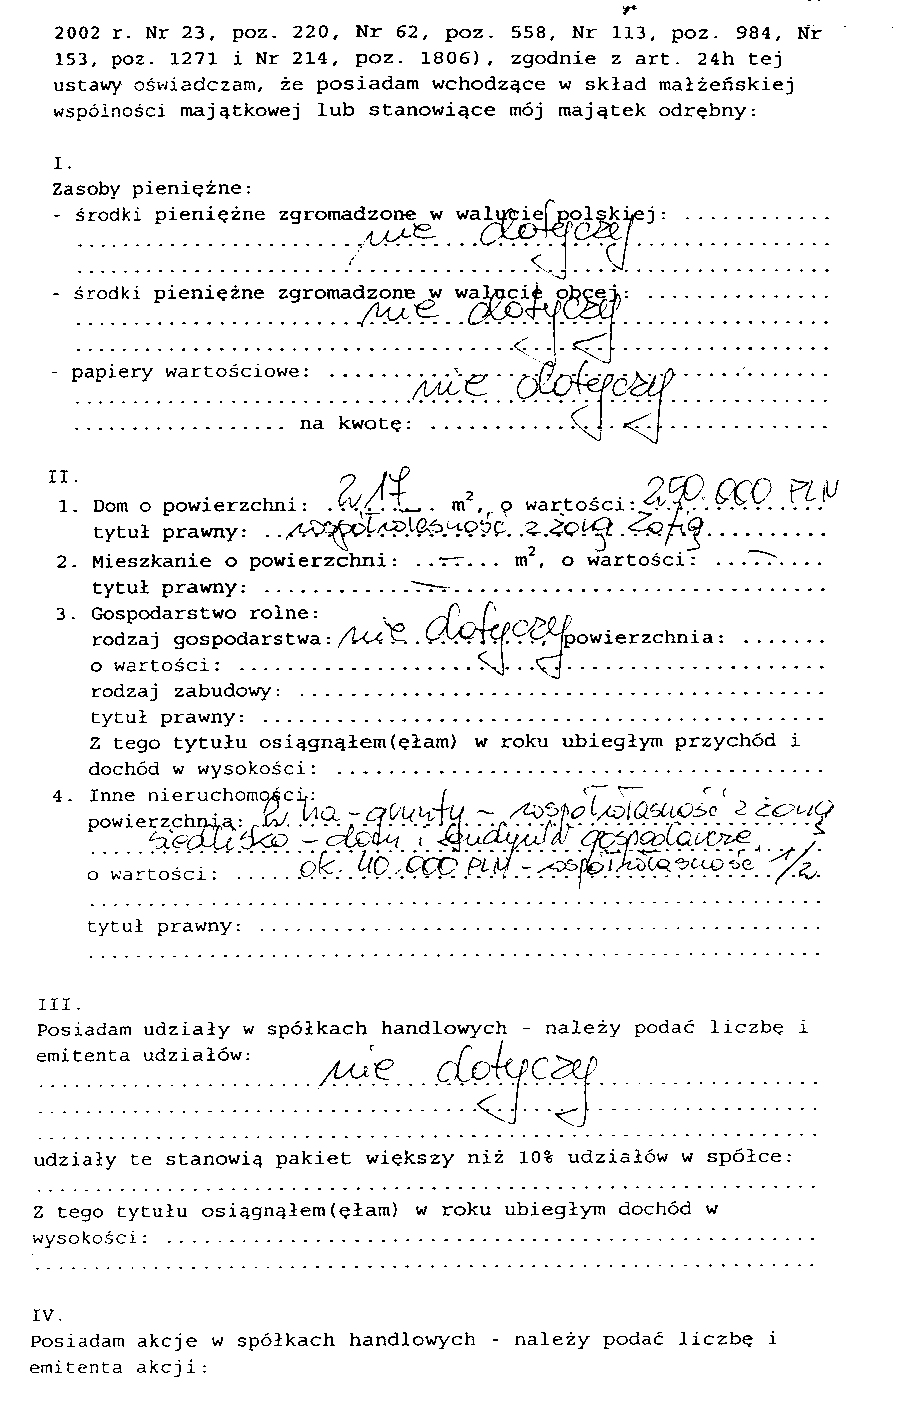 2002 r. Nr 23, poz. 220, Nr 62, poz. 558, Nr 113, poz. 984, Nr
153, poz. 1271 i Nr 214, poz. 1806), zgodnie z art. 24h tej
ustawy oświadczam, że posiadam wchodzące w skład małżeńskiej
wspólności majątkowej lub stanowiące mój majątek odrębny:
I.
Zasoby pieniężne:
- środki pieniężne zgromadzone w walucie polskiej: ............
nie dotyczy
- środki pieniężne zgromadzone w walucie obcej: ...............
nie dotyczy
- papiery wartościowe: ..........
nie dotyczy
.................. na kwotę: ............
II.
1. Dom o powierzchni: 217 m², o wartości: 250.000 PLN
tytuł prawny: współwłasność z żoną Zofią
2. Mieszkanie o powierzchni: ..—... m², o wartości: ...—....
tytuł prawny: ............—...............
3. Gospodarstwo rolne:
rodzaj gospodarstwa: nie dotyczy powierzchnia: .......
o wartości: ....................
rodzaj zabudowy: ............................................
tytuł prawny: ...............................................
Z tego tytułu osiągnąłem(ęłam) w roku ubiegłym przychód i
dochód w wysokości: .........................................
4. Inne nieruchomości:
powierzchnia: ha - grunty - współwłasność z żoną
siedlisko - dom i budynki gospodarcze
o wartości: ..... ok. 40.000 PLN - współwłasność 1/2
tytuł prawny: ...............................................
III.
Posiadam udziały w spółkach handlowych - należy podać liczbę i
emitenta udziałów:
nie dotyczy
udziały te stanowią pakiet większy niż 10% udziałów w spółce:
Z tego tytułu osiągnąłem(ęłam) w roku ubiegłym dochód w
wysokości: ......................................................
IV.
Posiadam akcje w spółkach handlowych - należy podać liczbę i
emitenta akcji: